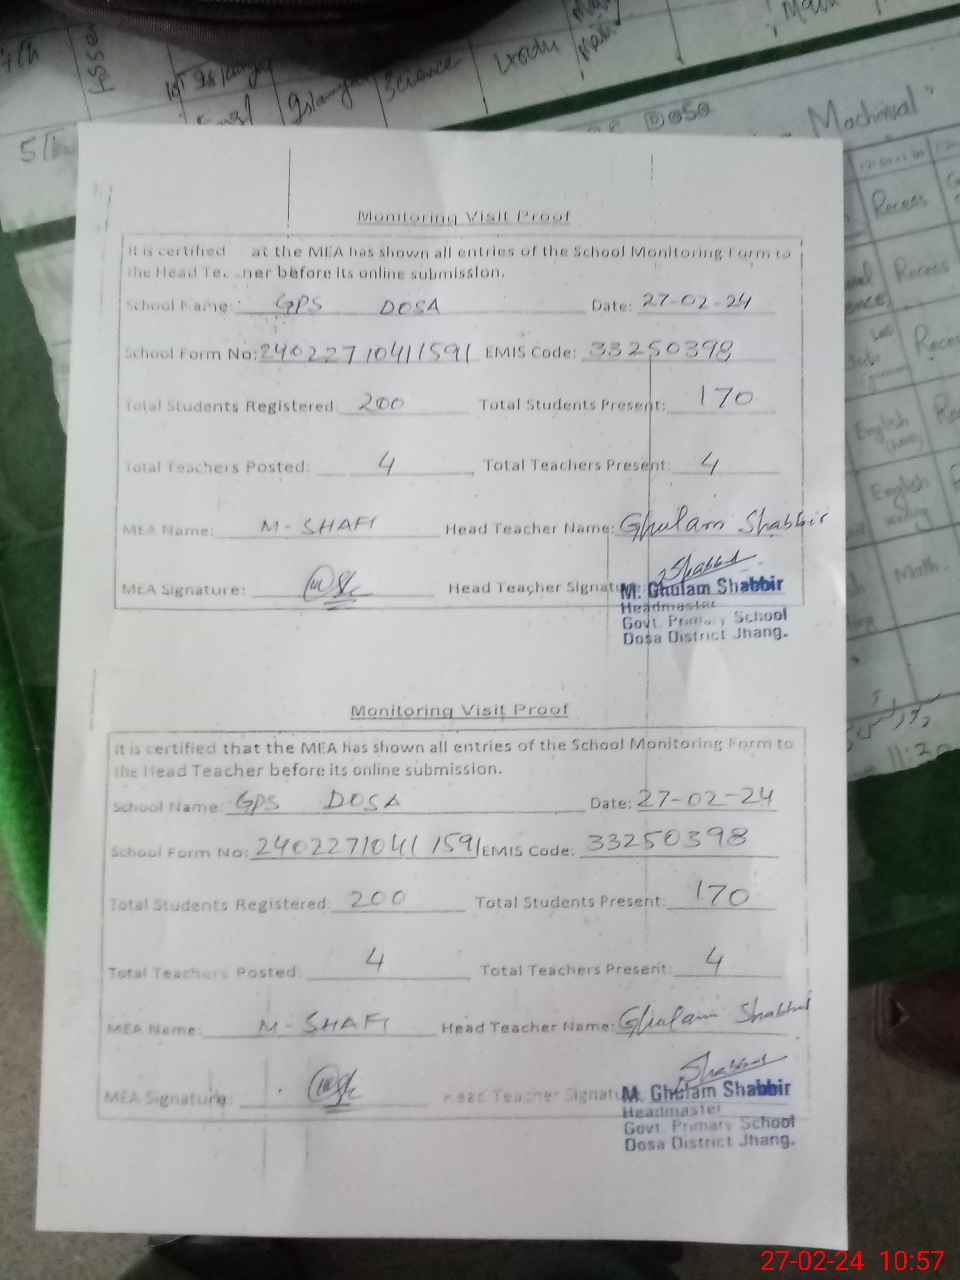 Science
Urdu
Dosa
Machiwal"
Recess
Recess
English
English
Math
Monitoring Visit Proof
It is certified at the MEA has shown all entries of the School Monitoring Form to
the Head Te ner before its online submission.
School Name: GPS DOSA Date: 27-02-24
School Form No: 24022710411591 EMIS Code: 33250398
Total Students Registered 200 Total Students Present: 170
Total Teachers Posted: 4 Total Teachers Present: 4
MEA Name: M-SHAFI Head Teacher Name: Ghulam Shabbir
MEA Signature: Head Teacher Signatu Shabbir
M. Ghulam Shabbir
Headmaster
Govt. Primary School
Dosa District Jhang.
Monitoring Visit Proof
It is certified that the MEA has shown all entries of the School Monitoring Form to
the Head Teacher before its online submission.
School Name: GPS DOSA Date: 27-02-24
School Form No: 24022710411591 EMIS Code: 33250398
Total Students Registered: 200 Total Students Present: 170
Total Teachers Posted: 4 Total Teachers Present: 4
MEA Name: M-SHAFI Head Teacher Name: Ghulam Shabbir
MEA Signature: Head Teacher Signatu Shabbir
M. Ghulam Shabbir
Headmaster
Govt. Primary School
Dosa District Jhang.
27-02-24 10:57